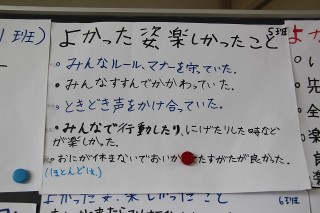 1班)
よかった姿、楽しかったこと 5班
。みんなルール、マナーを守っていた。
。みんなすすんでかかわっていた。
。ときどき声をかけ合っていた。
。みんなで行動したり、にげたりした時など
が楽しかった。
。おにが休まないでおいか たすがたが良かった。
(ほとんどは、)
よかった姿、楽しかったこと
6班